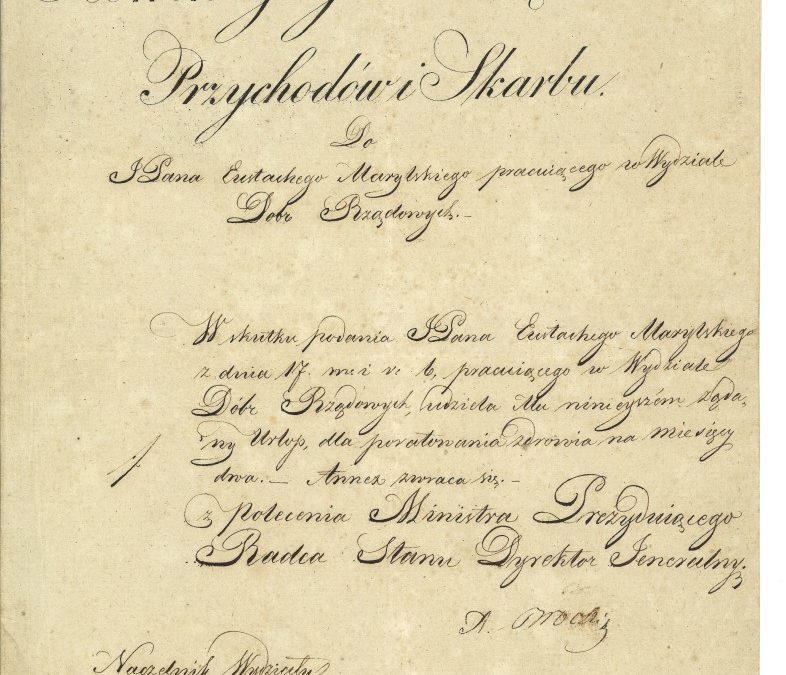 Przychodów i Skarbu.
Do
JPana Eustachego Marylskiego pracuiącego w Wydziale
Dobr Rządowych.-
W skutku podania JPana Eustachego Marylskiego
z dnia 17. m. i r. b. pracuiącego w Wydziale
Dóbr Rządowych, udziela Mu ninieyszém żąda-
ny Urlop, dla poratowania zdrowia na miesięcy
dwa. — Annex zwraca się. -
z polecenia Ministra Prezyduiącego
Radca Stanu Dyrektor Jeneralny.
A.
Naczelnik Wydziału